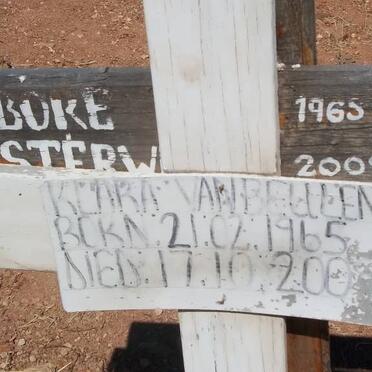 BOKE 1965
STERW 200
KLARA VAN BREDEN
BORN. 21.02.1965
DIED. 17.10 200